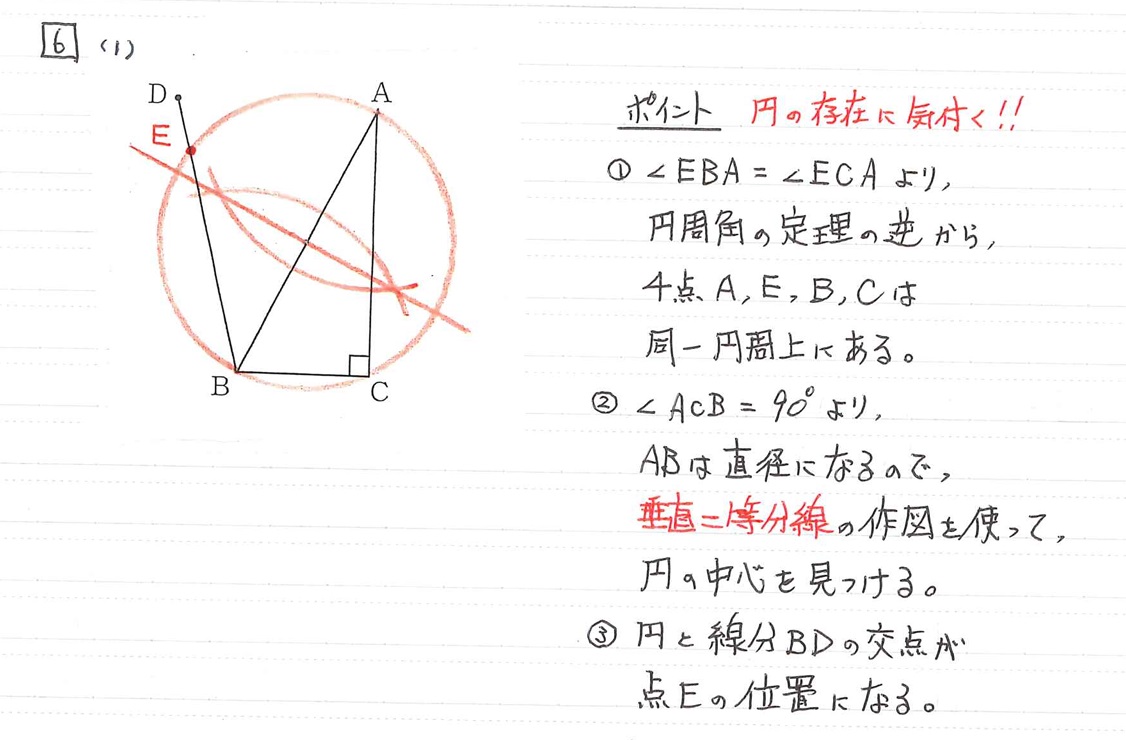 6 (1)
D
A
E
B
C
ポイント 円の存在に気付く!!
① ∠EBA = ∠ECA より,
円周角の定理の逆から,
4点 A, E, B, C は
同一円周上にある。
② ∠ACB = 90° より,
ABは直径になるので,
垂直二等分線の作図を使って,
円の中心を見つける。
③ 円と線分BDの交点が
点Eの位置になる。